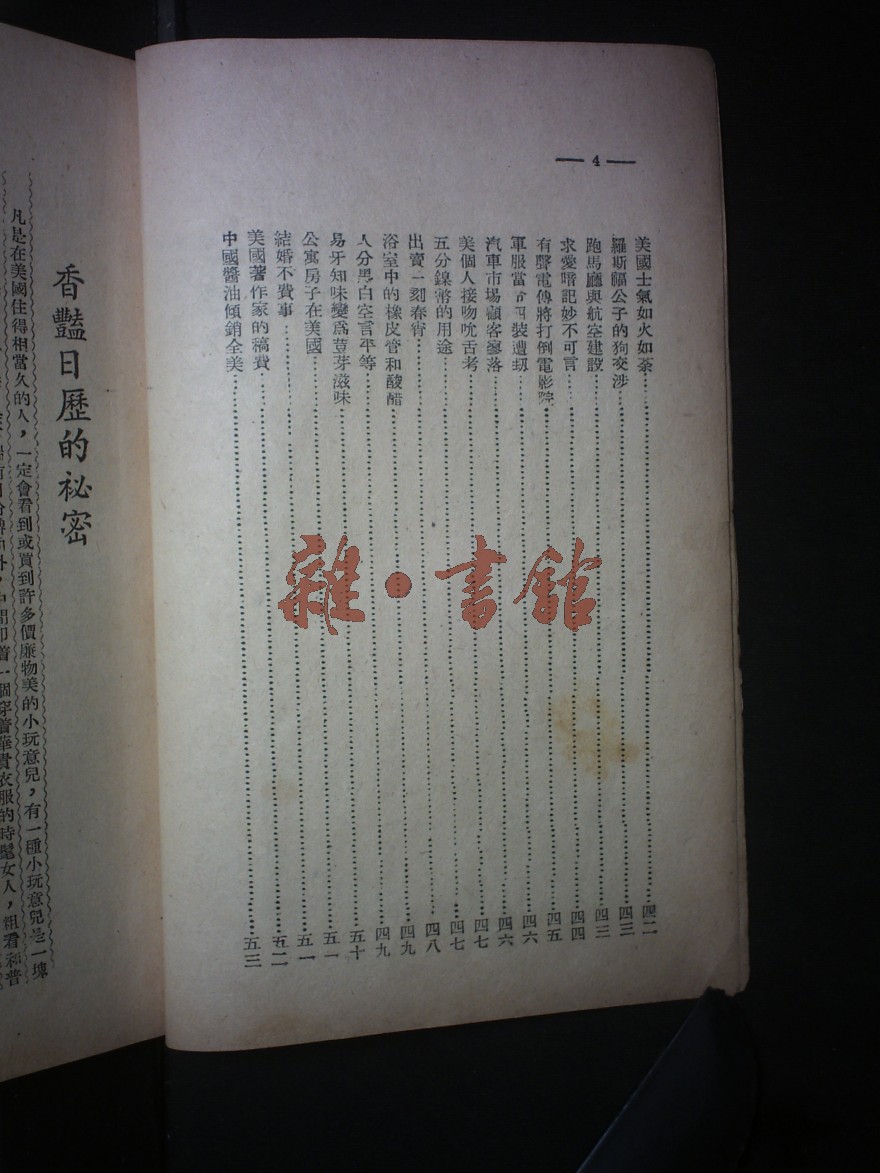 — 4 —
美國士氣如火如荼……四二
羅斯福公子的狗交涉……四三
跑馬廳與航空建設……四三
求愛暗記妙不可言……四四
有聲電傳將打倒電影院……四五
軍服當 裝遭刼……四六
汽車市場顧客寥落……四六
美個人接吻吮舌考……四七
五分鎳幣的用途……四七
出賣一刻春宵……四八
浴室中的橡皮管和酸醋……四九
人分黑白空言平等……四九
易牙知味變爲荳芽滋味……五十
公寓房子在美國……五一
結婚不費事……五一
美國著作家的稿費……五二
中國醬油傾銷全美……五三
雜·書館
香豔日歷的祕密
凡是在美國住得相當久的人，一定會看到或買到許多價廉物美的小玩意兒，有一種小玩意兒是一塊
一個穿着華貴衣服的時髦女人，粗看和普